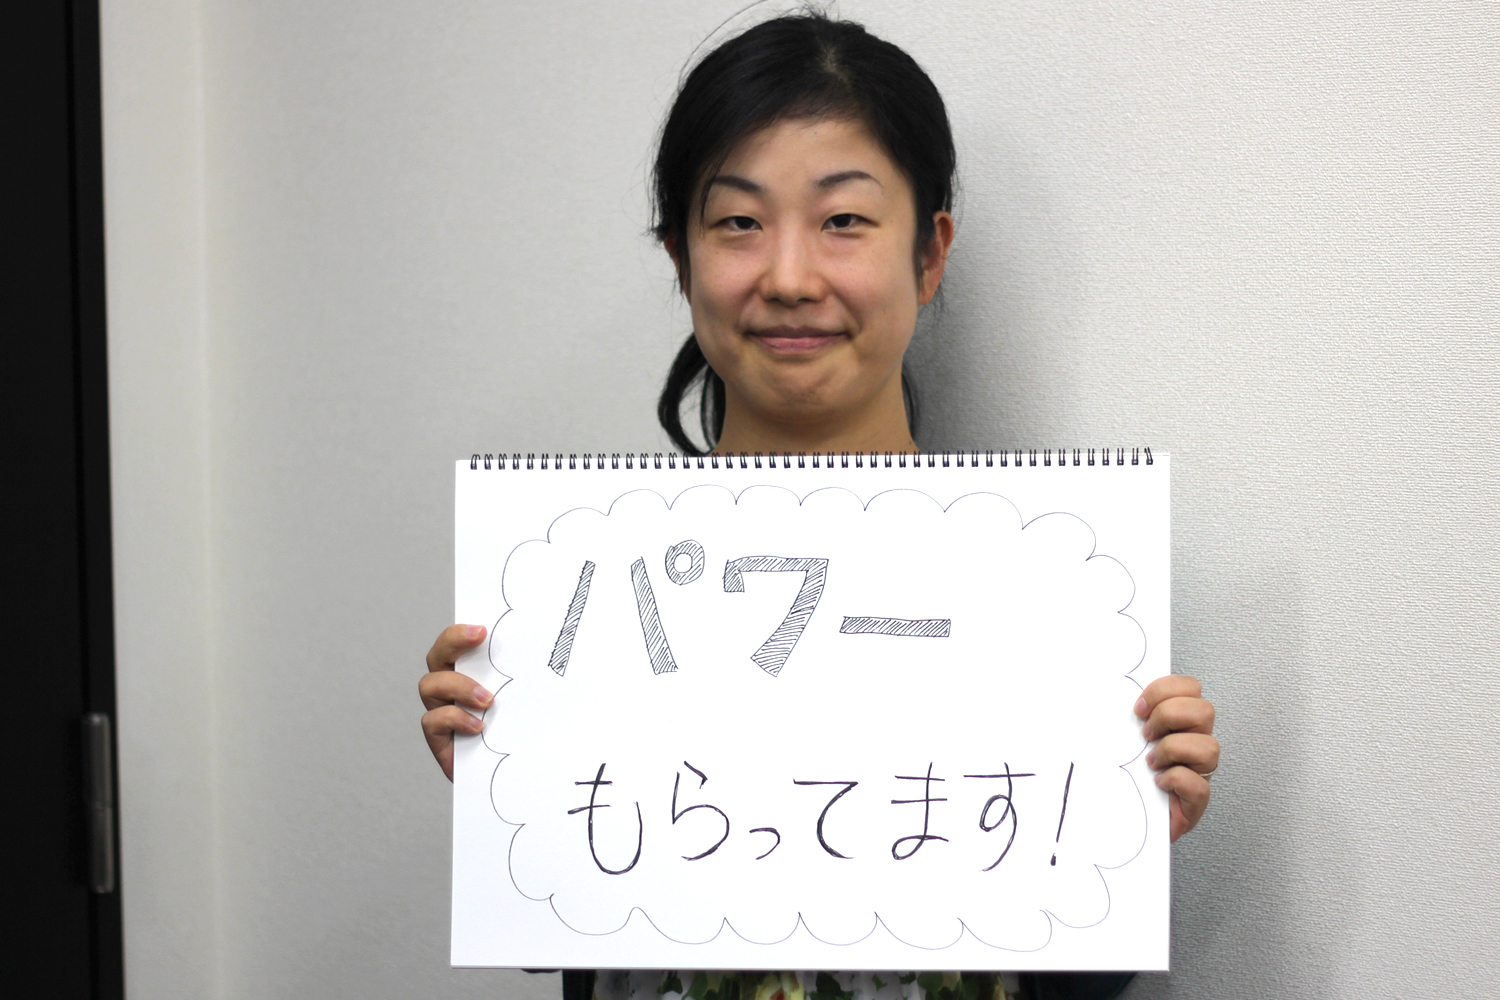 パワー
もらってます!